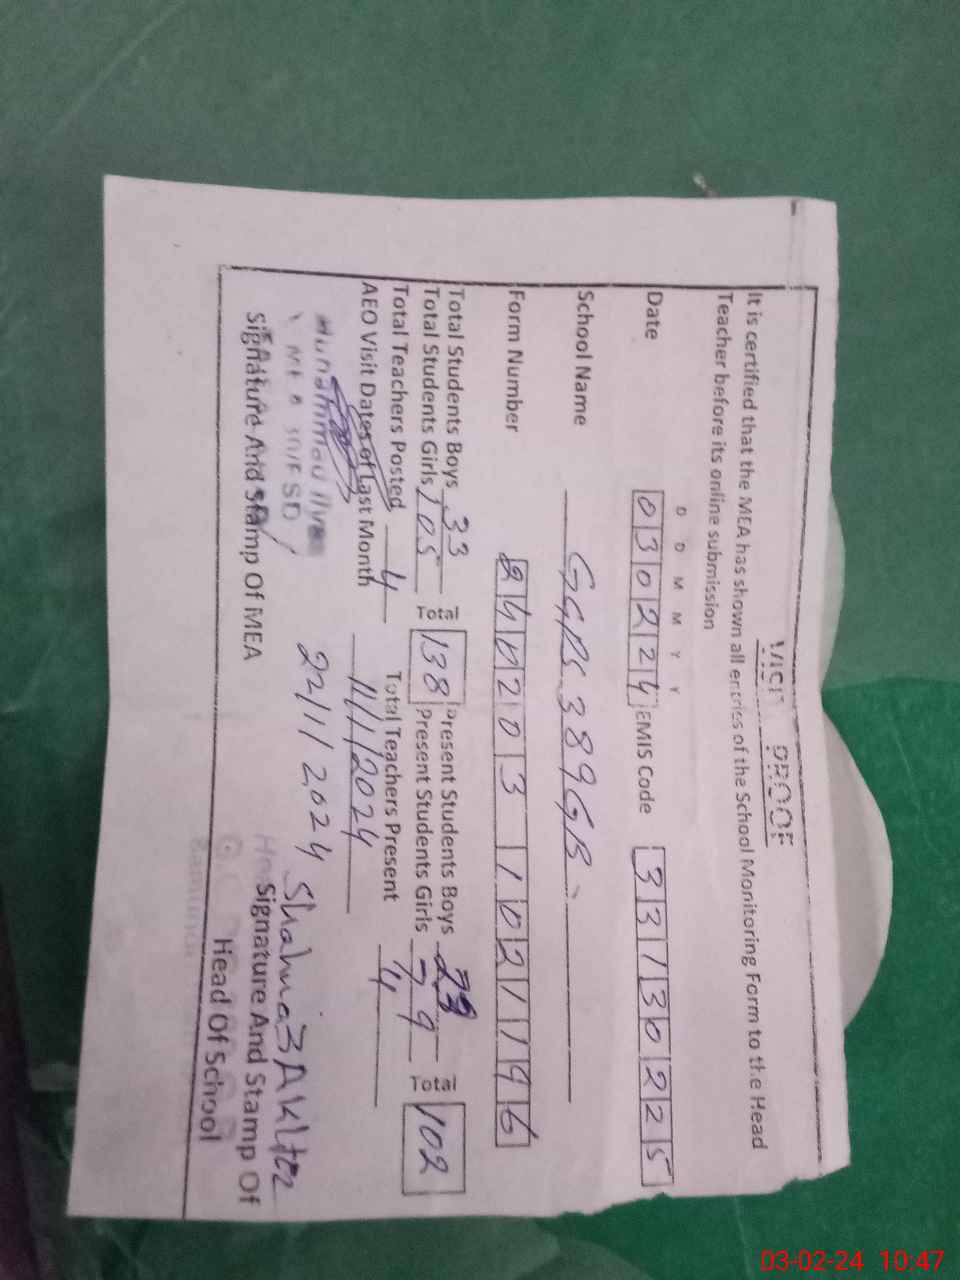 VISIT PROOF
It is certified that the MEA has shown all entries of the School Monitoring Form to the Head
Teacher before its online submission
D D M M Y Y
Date 030224 EMIS Code 33130225
School Name GGPS 389GB
Form Number 240203 10211196
Total Students Boys 33 Total 138 Present Students Boys Total 102
Total Students Girls 105 Present Students Girls 79
Total Teachers Posted 4 Total Teachers Present 4
AEO Visit Dates of Last Month 11/1/2024
22/1/2024
Signature And Stamp Of MEA
Signature And Stamp Of
Head Of School
03-02-24 10:47